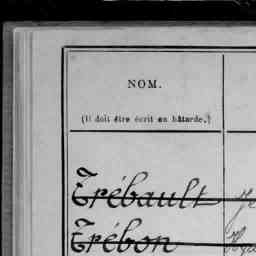 NOM.
(Il doit être écrit en bâtarde.)
Trébault
Trébon